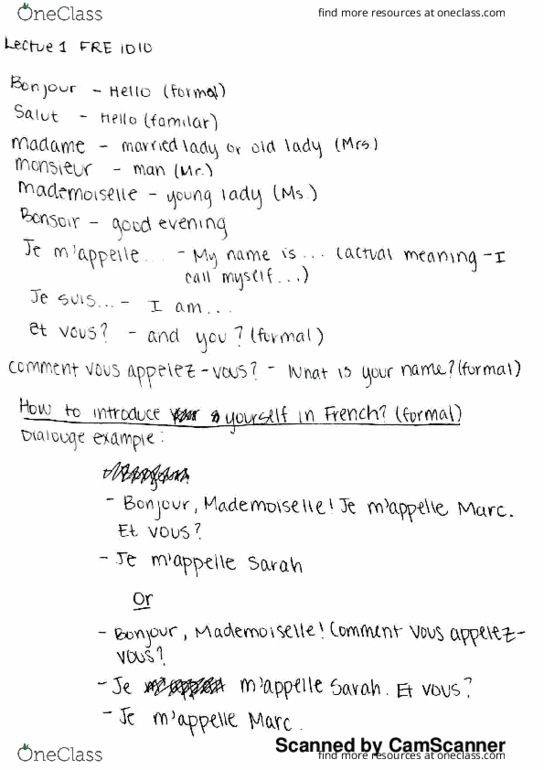 OneClass
find more resources at oneclass.com
Lectue 1 FRE 1010
Bonjour - Hello (formal)
Salut - Hello (familar)
madame - married lady or old lady (Mrs.)
monsieur - man (Mr.)
mademoiselle - young lady (Ms.)
Bonsoir - good evening
Je m'appelle... - My name is ... (actual meaning - I
call myself...)
Je suis... - I am...
et vous? - and you? (formal)
comment vous appelez-vous? - What is your name? (formal)
How to introduce yourself in French? (formal)
Dialouge example:
- Bonjour, Mademoiselle! Je m'appelle Marc.
Et vous?
- Je m'appelle Sarah
Or
- Bonjour, Mademoiselle! Comment vous appelez-
vous?
- Je m'appelle Sarah. Et vous?
- Je m'appelle Marc.
Scanned by CamScanner
OneClass
find more resources at oneclass.com